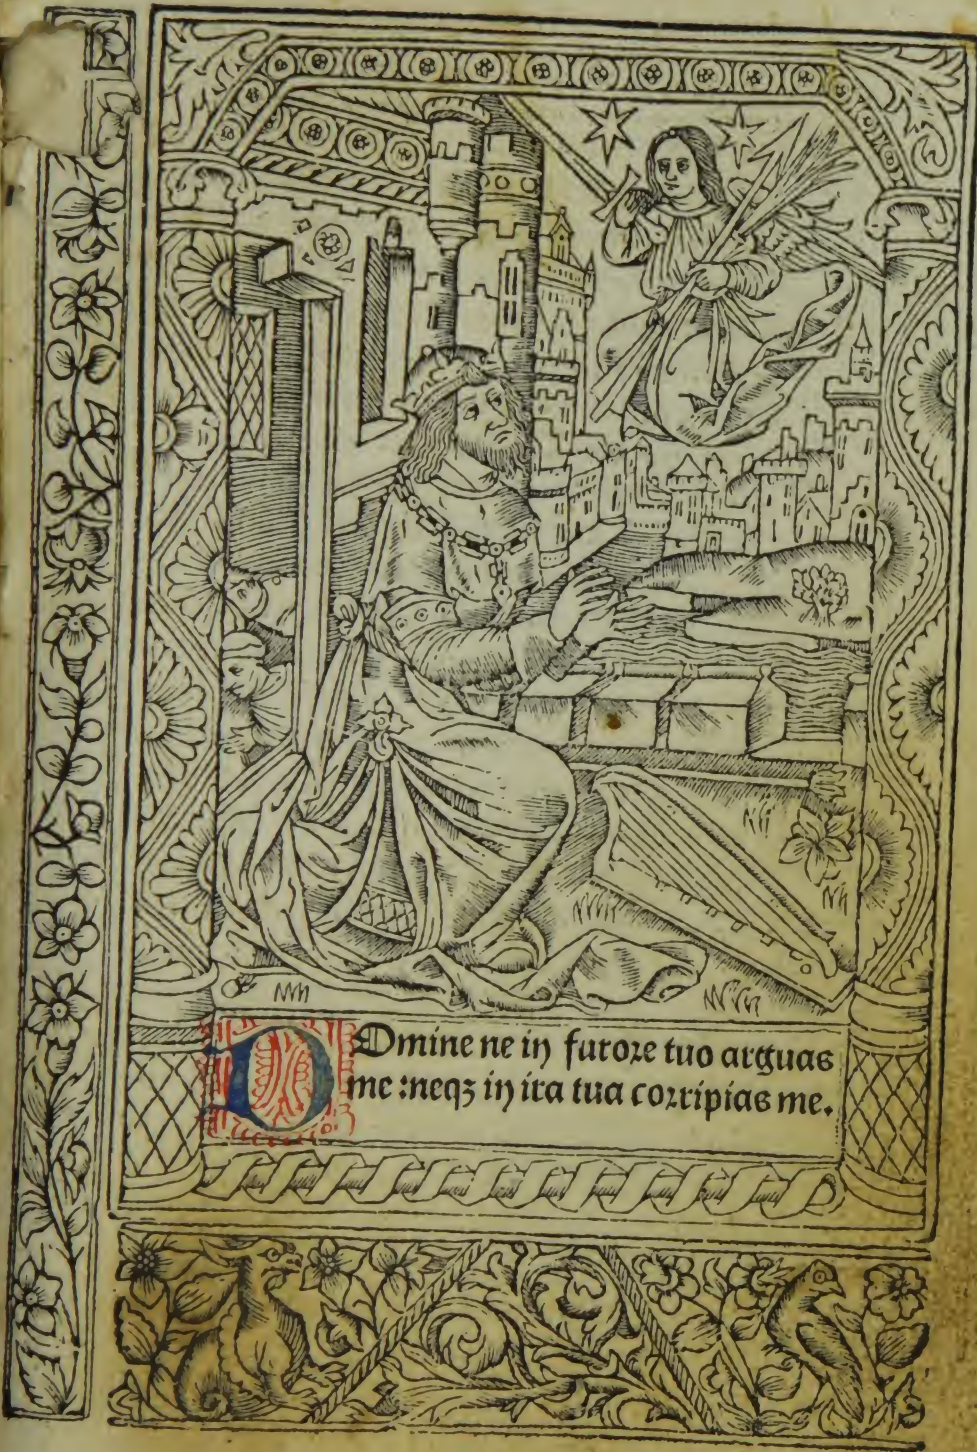 DOmine ne in furore tuo arguas
me :neqꝫ in ira tua corripias me.